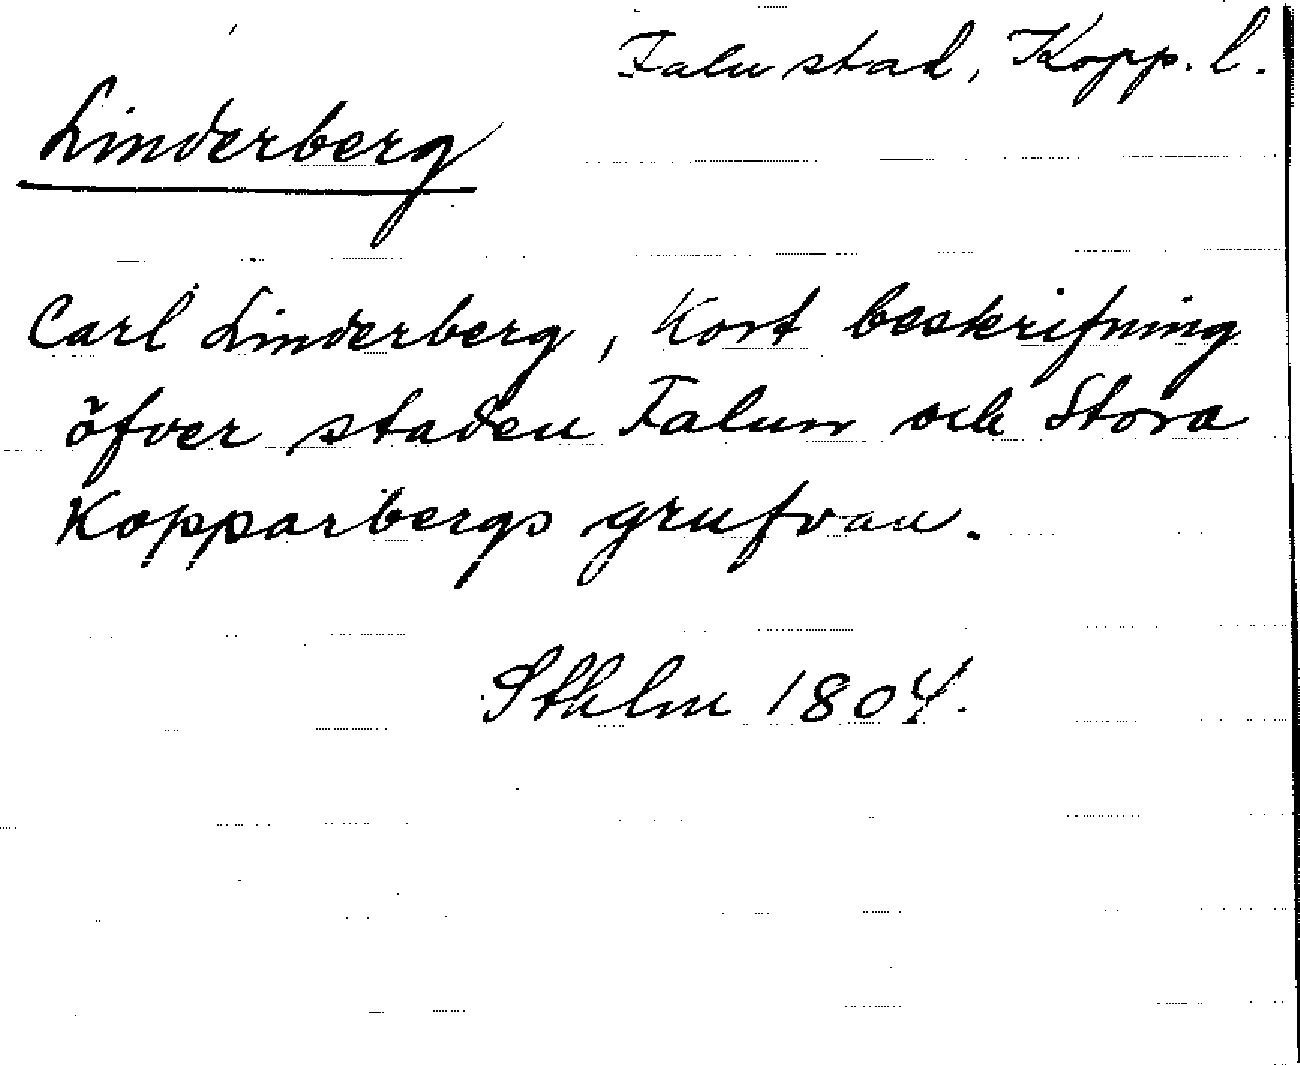 Falu stad, Kopp. l.
Linderberg
Carl Linderberg, Kort beskrifning
öfver staden Falun och Stora
Kopparbergs grufvan.
Sthlm 1804.